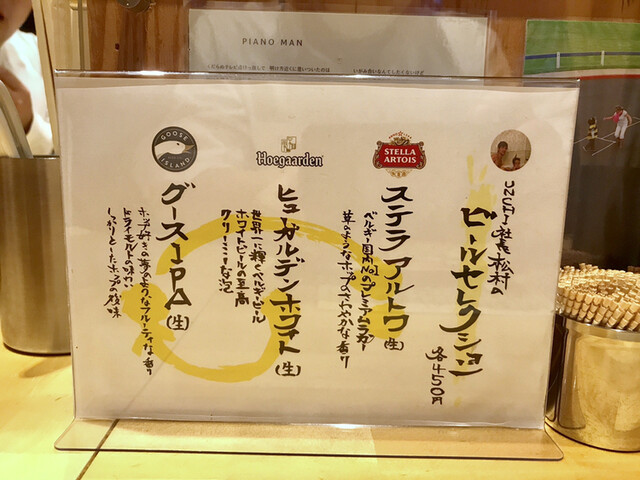 PIANO MAN
UZUMA社長松村の
ビールセレクション
各450円
STELLA
ARTOIS
ステラアルトワ(生)
ベルギー国内No.1のプレミアムラガー
草のようなホップのさわやかな香り
Hoegaarden
ヒューガルデンホワイト(生)
世界一に輝くベルギービール
ホワイトビールの至高
クリーミーな泡
GOOSE
ISLAND
グースIPA(生)
ホップ好きの夢のようなフルーティな香り
ドライモルトの味わい
しっかりとしたホップの後味